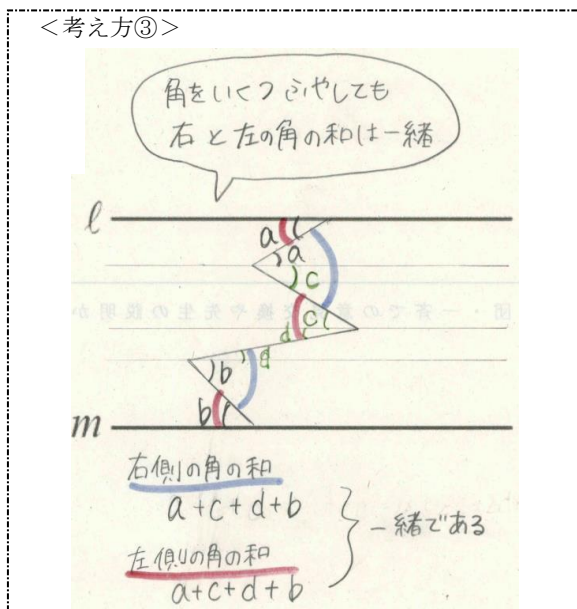 ＜考え方③＞
角をいくつふやしても
右と左の角の和は一緒
ℓ
a
a
c
c
d
d
b
b
m
右側の角の和
a+c+d+b
一緒である
左側の角の和
a+c+d+b